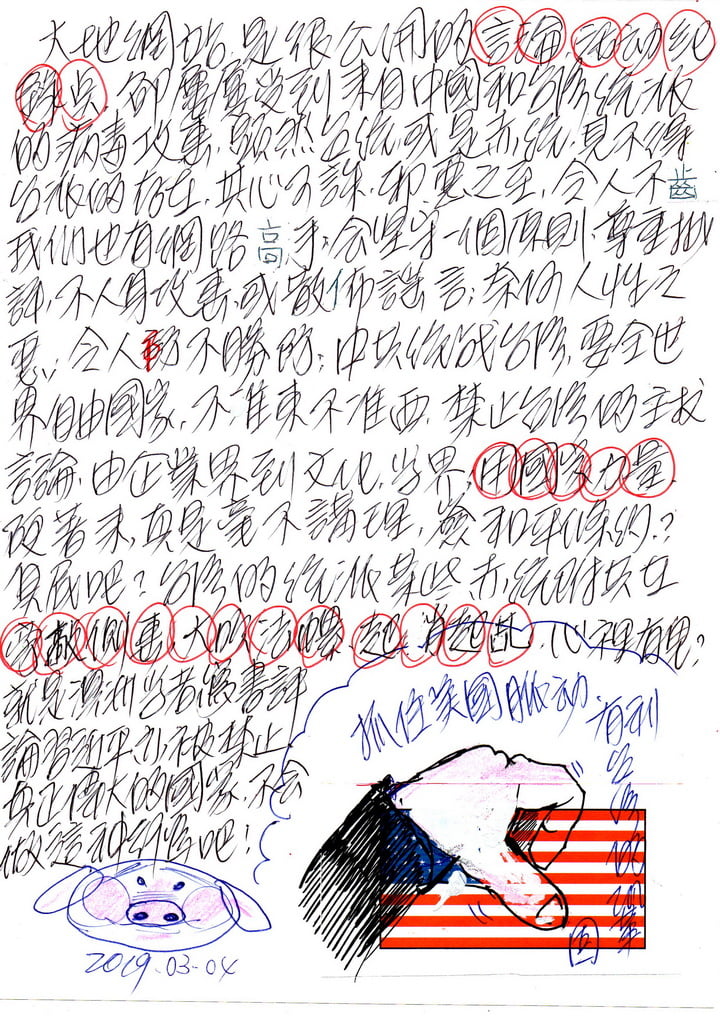 大地網站,是很公開的言論,活动紀
錄点,卻屢屢受到來自中國和台灣統派
的病毒攻击,顯然台統或是赤統,見不得
台派的存在,其心可誅,邪惡之至,令人不齒
我們也有網路高手,会坚守一個原則,尊重批
評,不人身攻击,或散佈謠言;奈何人性之
惡,令人防不勝防;中共統战台灣,要全世
界自由國家,不准東不准西,禁止台灣的主权
言論,由企業界到文化,学界,用國家力量
硬著來,真是毫不講理,簽和平條約?
見底吧?台灣的統派某些赤統附共在
旁敲側击,大吹法螺,起肖起乱,心裡有鬼?
就是澳洲学者做書評
論習近平亦被禁止,
真正偉大的國家,不会
做這种
吧!
抓住美國脈动
有利
台灣
国
2019.03-04